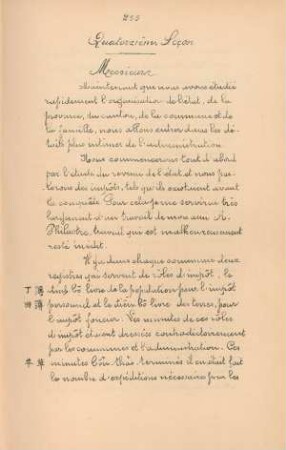 255
Quatorzième Leçon
Messieurs
Maintenant que nous avons étudié
rapidement l'organisation de l'état, de la
province, du canton, de la commune et de
la famille, nous allons entrer dans les dé-
tails plus intimes de l'administration.
Nous commencerons tout d'abord
par l'étude du revenu de l'état et nous par-
lerons des impôts, tels qu'ils existaient avant
la conquête. Pour cela je me servirai très
largement d'un travail de mon ami M.
Philastre, travail qui est malheureusement
resté inédit.
Il y a dans chaque commune deux
registres qui servent de rôles d'impôt, le
丁簿 đinh bô livre de la population pour l'impôt
田簿 personnel et le điền bô livre des terres, pour
l'impôt foncier. Les minutes de ces rôles
d'impôt étaient dressées contradictoirement
par les communes et l'administration. Ces
草 minutes terminées il en était fait
le nombre d'expéditions nécessaires pour les